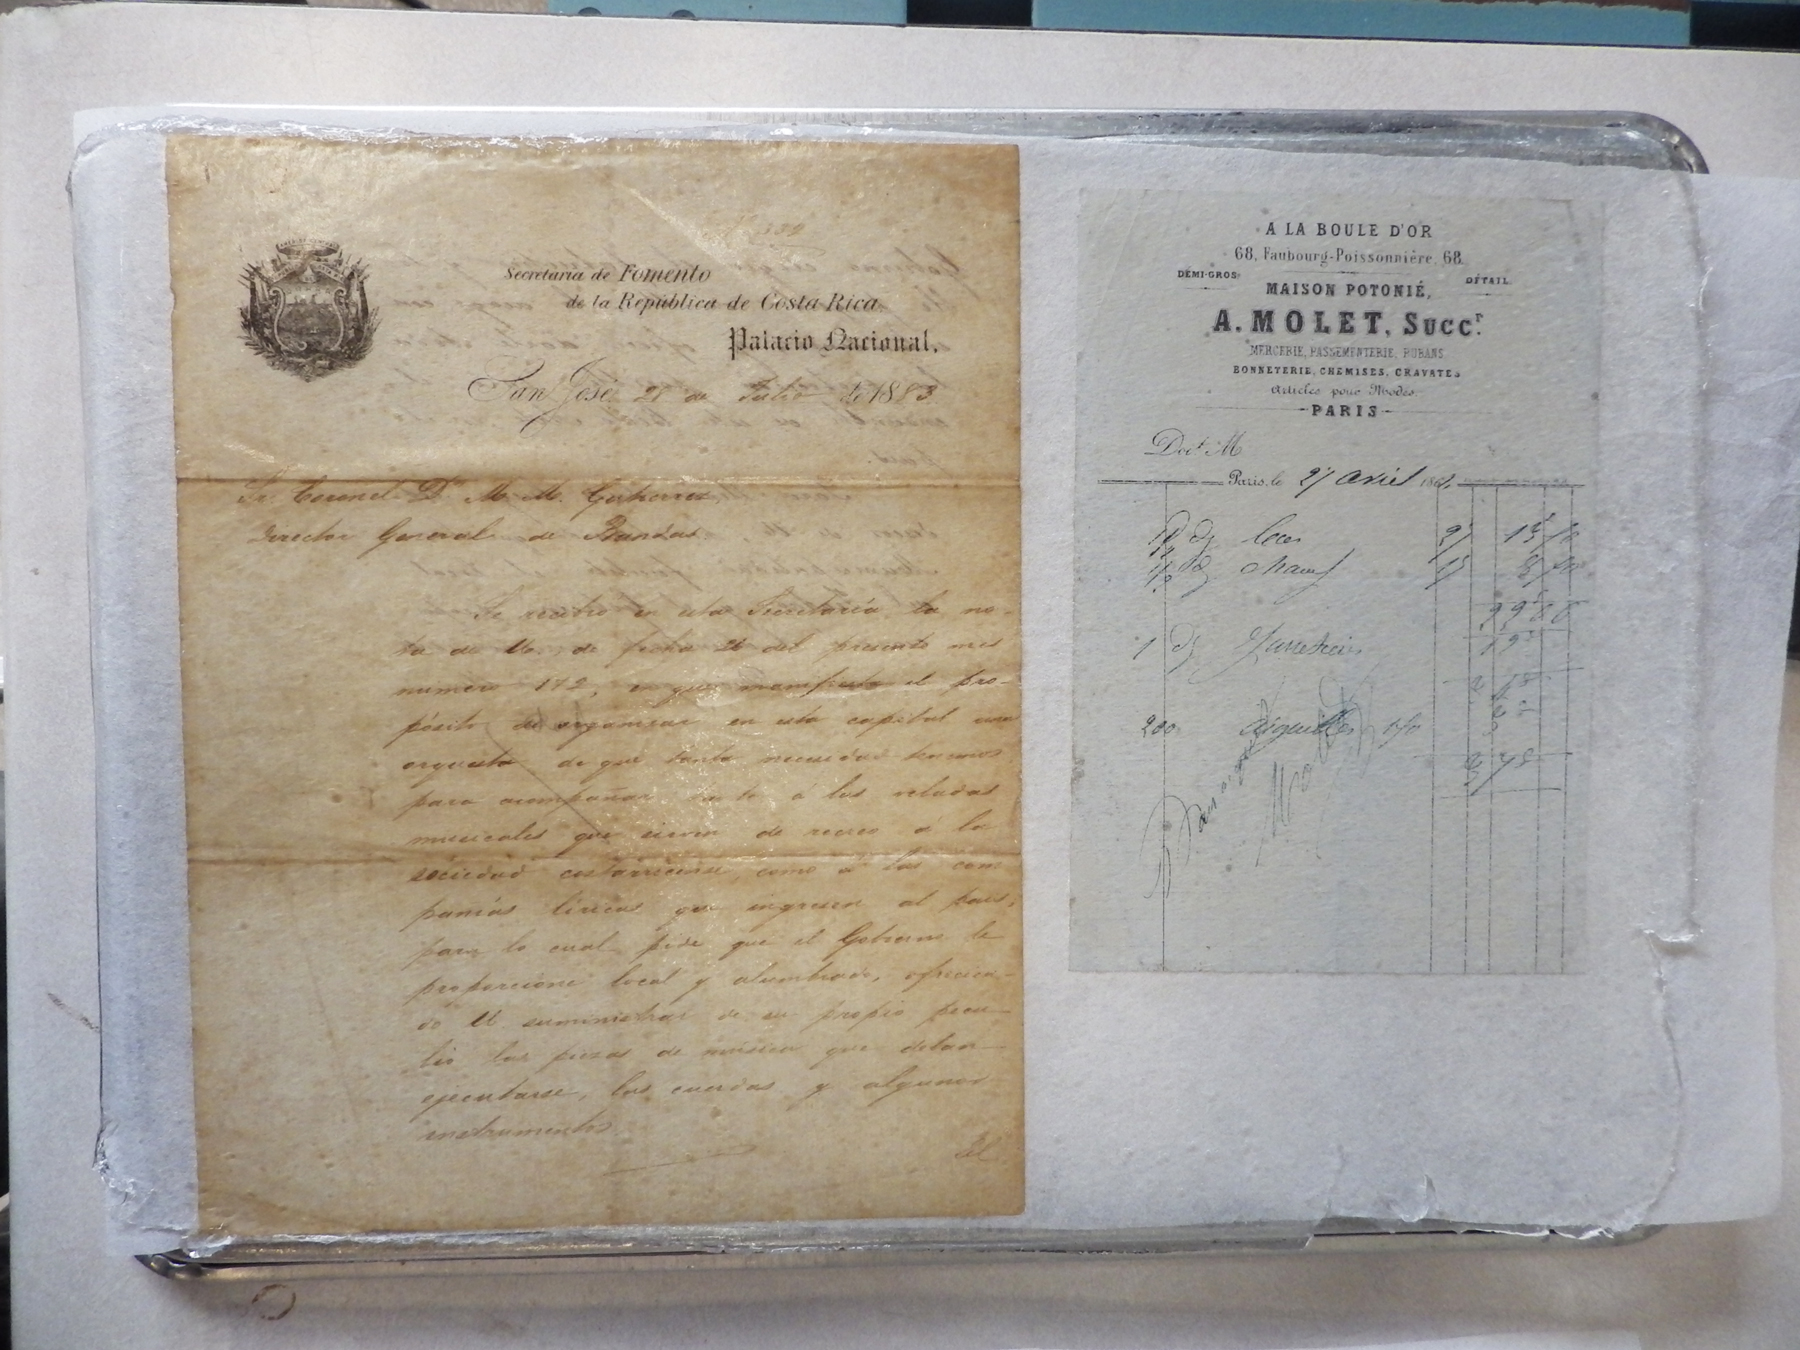 Secretaría de Fomento
de la República de Costa Rica.
Palacio Nacional.
San José 28 de Julio de 1883
Sr. Coronel Dn M. M. Gutierrez
Director General de Bandas
Se recibió en esta Secretaría la no-
ta de U. de fecha del presente mes
numero 172, en que manifiesta el pro-
pósito de organizar en esta capital una
orquesta de que tanta necesidad tenemos
para acompañar á las veladas
musicales que sirven de recreo á la
sociedad costarricense, como á las com
pañías líricas que ingresen al pais,
para lo cual pide que el Gobierno le
proporcione local y alumbrado, ofrecien-
do U suministrar de su propio pecu-
lio las piezas de música que deban
ejecutarse, las cuerdas y algunos
instrumentos.
El
A LA BOULE D'OR
68, Faubourg-Poissonnière, 68
DEMI-GROS DÉTAIL
MAISON POTONIÉ,
A. MOLET, SUCCr.
MERCERIE, PASSEMENTERIE, RUBANS
BONNETERIE, CHEMISES, CRAVATES
Articles pour Modes.
-PARIS-
Doit M
Paris, le 27 Avril 188
1
200 aiguilles